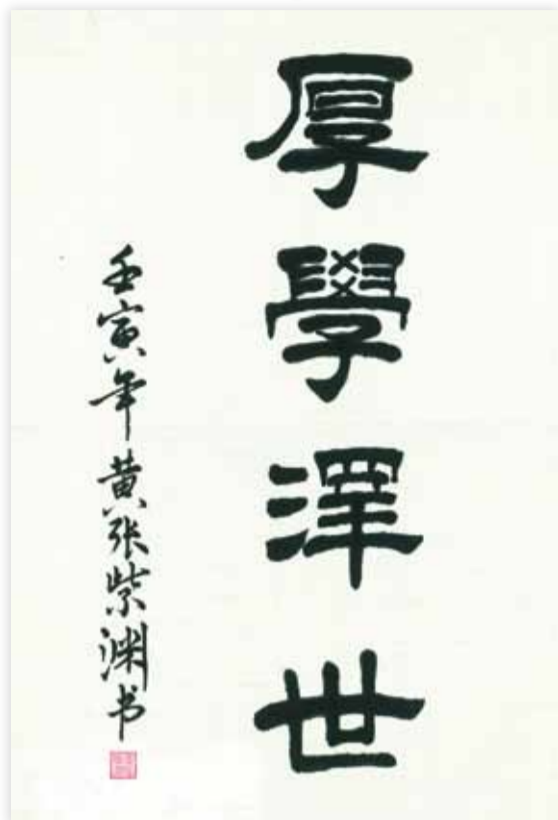 厚學澤世
壬寅年黄张紫渊书